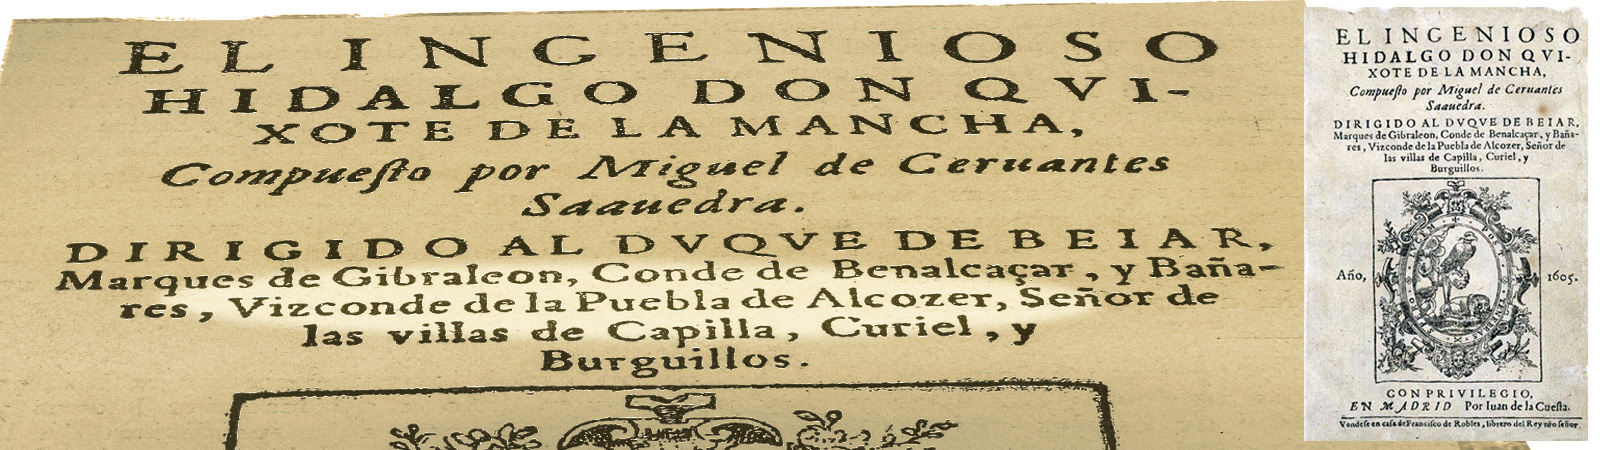 EL INGENIOSO
HIDALGO DON QVI-
XOTE DE LA MANCHA,
Compueſto por Miguel de Ceruantes
Saauedra.
DIRIGIDO AL DVQVE DE BEIAR,
Marques de Gibraleon, Conde de Benalcaçar, y Baña-
res, Vizconde de la Puebla de Alcozer, Señor de
las villas de Capilla, Curiel, y
Burguillos.
EL INGENIOSO
HIDALGO DON QVI-
XOTE DE LA MANCHA,
Compueſto por Miguel de Ceruantes
Saauedra.
DIRIGIDO AL DVQVE DE BEIAR,
Marques de Gibraleon, Conde de Benalcaçar, y Baña-
res, Vizconde de la Puebla de Alcozer, Señor de
las villas de Capilla, Curiel, y
Burguillos.
Año, 1605.
CON PRIVILEGIO,
EN MADRID Por Iuan de la Cueſta.
Vendeſe en caſa de Franciſco de Robles, librero del Rey nřo ſeñor.